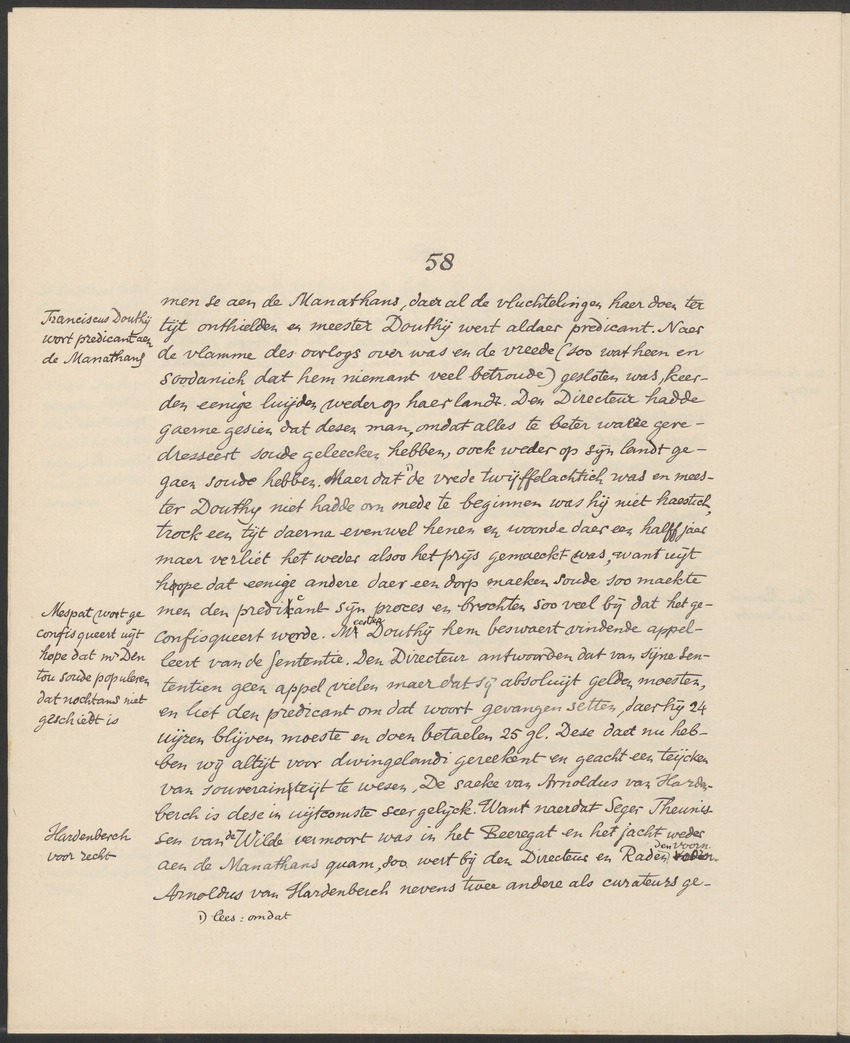 58
Franciscus Douthij
wort predicant aen
de Manathans
men se aen de Manathans, daer al de vluchtelingen haer doen ter
tijt onthielden en meester Douthij wert aldaer predicant. Naer
de vlamme des oorlogs over was en de vreede (soo wat heen en
soodanich dat hem niemant veel betroude) gesloten was, keer-
den eenige luijden weder op haer landt. Den Directeur hadde
gaerne gesien dat desen man, omdat alles te beter
dresseert soude geleecken hebben, oock weder op sijn landt ge-
gaen soude hebben. Maer dat 1) de vrede twijffelachtich was en mees-
ter Douthy niet hadde om mede te beginnen was hij niet haestich,
trock een tijt daerna evenwel henen en woonde daer een halff jaer
maer verliet het weder alsoo het prijs gemaeckt was, want uijt
hope dat eenige andere daer een dorp maeken soude soo maekte
men den predicant sijn proces en brochten soo veel bij dat het ge-
confisqueert werde. Mr Douthij hem beswaert vindende appel-
leert van de sententie. Den Directeur antwoorden dat van sijne sen-
tentien geen appel vielen maer dat sij absoluijt gelden moesten,
en liet den predicant om dat woort gevangen setten, daer hij 24
uijren blijven moeste en doen betaelen 25 gl. Dese daet nu heb-
ben wij altijt voor dwingelandi gereekent en geacht een teijcken
van souverainiteijt te wesen. De saeke van Arnoldus van Harden-
berch is dese in uijtcomste seer gelijck. Want naerdat Seger Theunis-
sen van de Wilde vermoort was in het Beeregat en het jacht weder
aen de Manathans quam, soo wert bij den Directeur en Raden den voorn.
Arnoldus van Hardenberch nevens twee andere als curateurs ge-
Mespat wort ge
confisqueert uijt
hope dat mr Den
tou soude populeren
dat nochtans niet
geschiedt is
Hardenberch
voor recht
1) lees: omdat